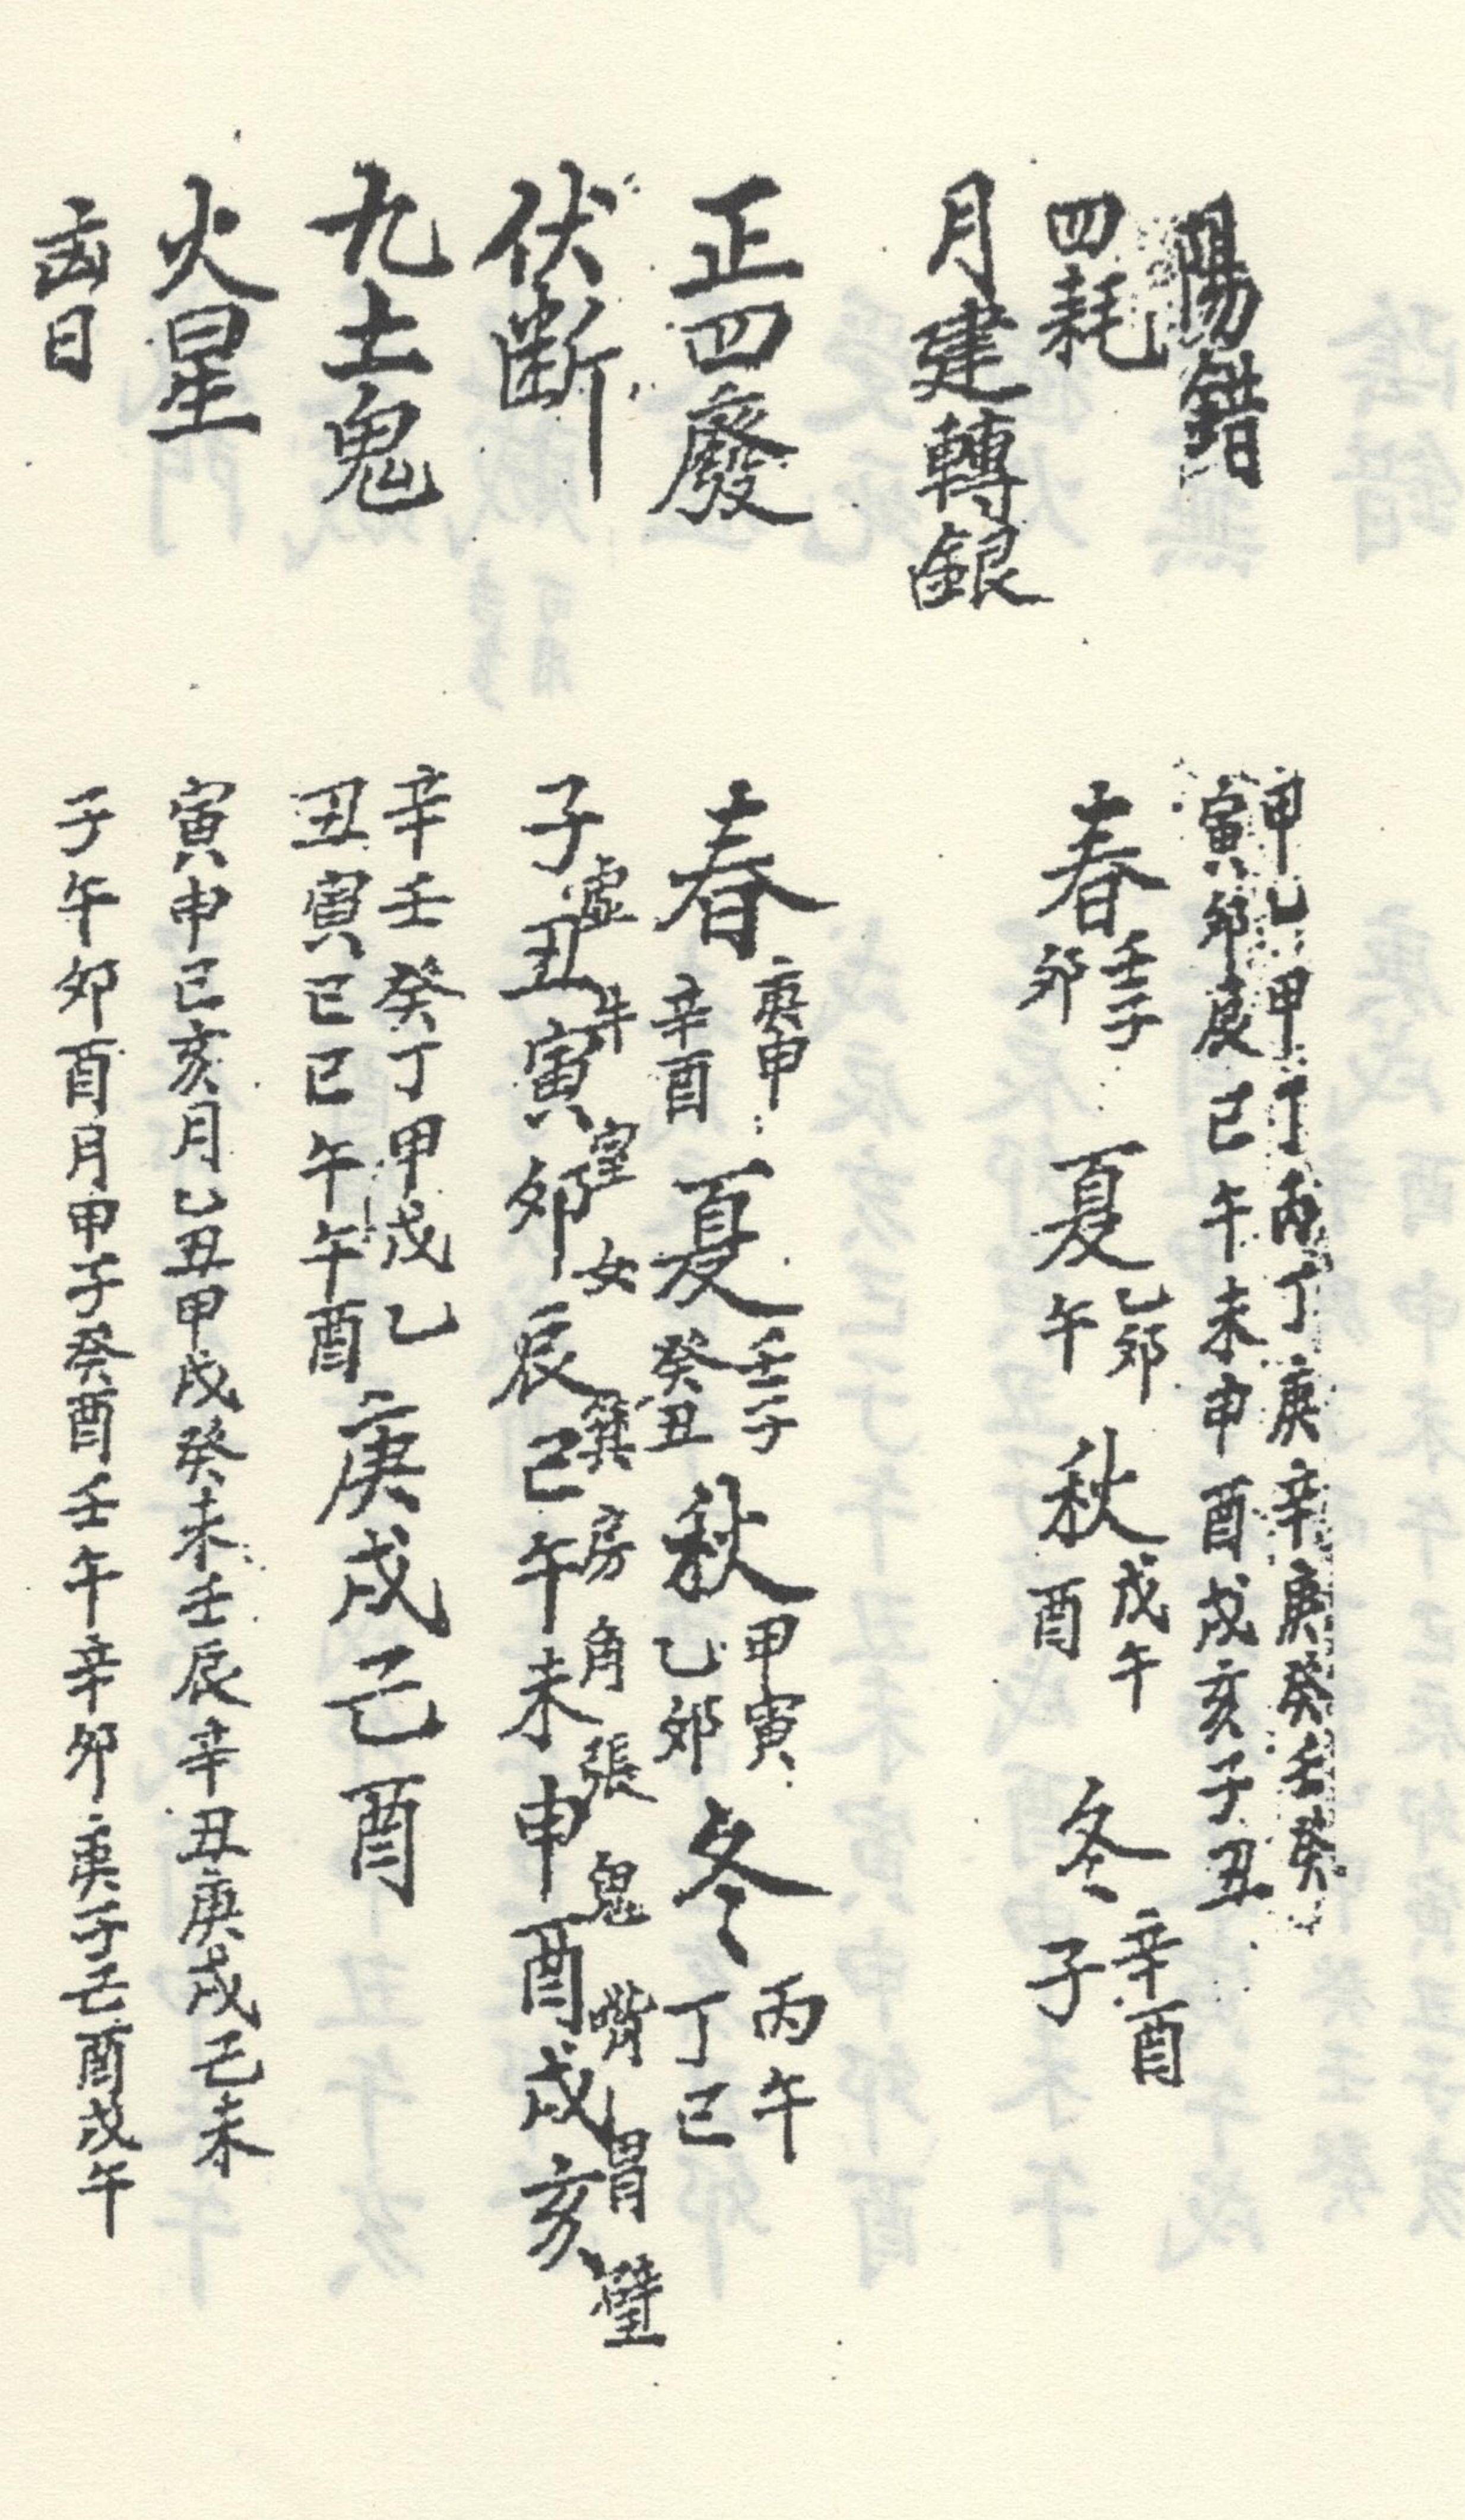 陽錯
甲乙甲丁丙丁庚辛庚癸壬癸
寅卯辰巳午未申酉戌亥子丑
四耗
春 壬子 夏 乙卯 秋 戊午 冬 辛酉
月建轉銀
卯 午 酉 子
正四廢
春 庚申 辛酉 夏 壬子 癸丑 秋 甲寅 乙卯 冬 丙午 丁巳
伏断
虚 斗 室 女 箕 房 角 張 鬼 嘴 胃 壁
子丑寅卯辰巳午未申酉戌亥
九土鬼
辛壬癸丁甲戊乙
丑寅巳巳午午酉
庚戌己酉
火星
寅申巳亥月乙丑甲戌癸未壬辰辛丑庚戌己未
凶日
子午卯酉月甲子癸酉壬午辛卯庚子己酉戊午